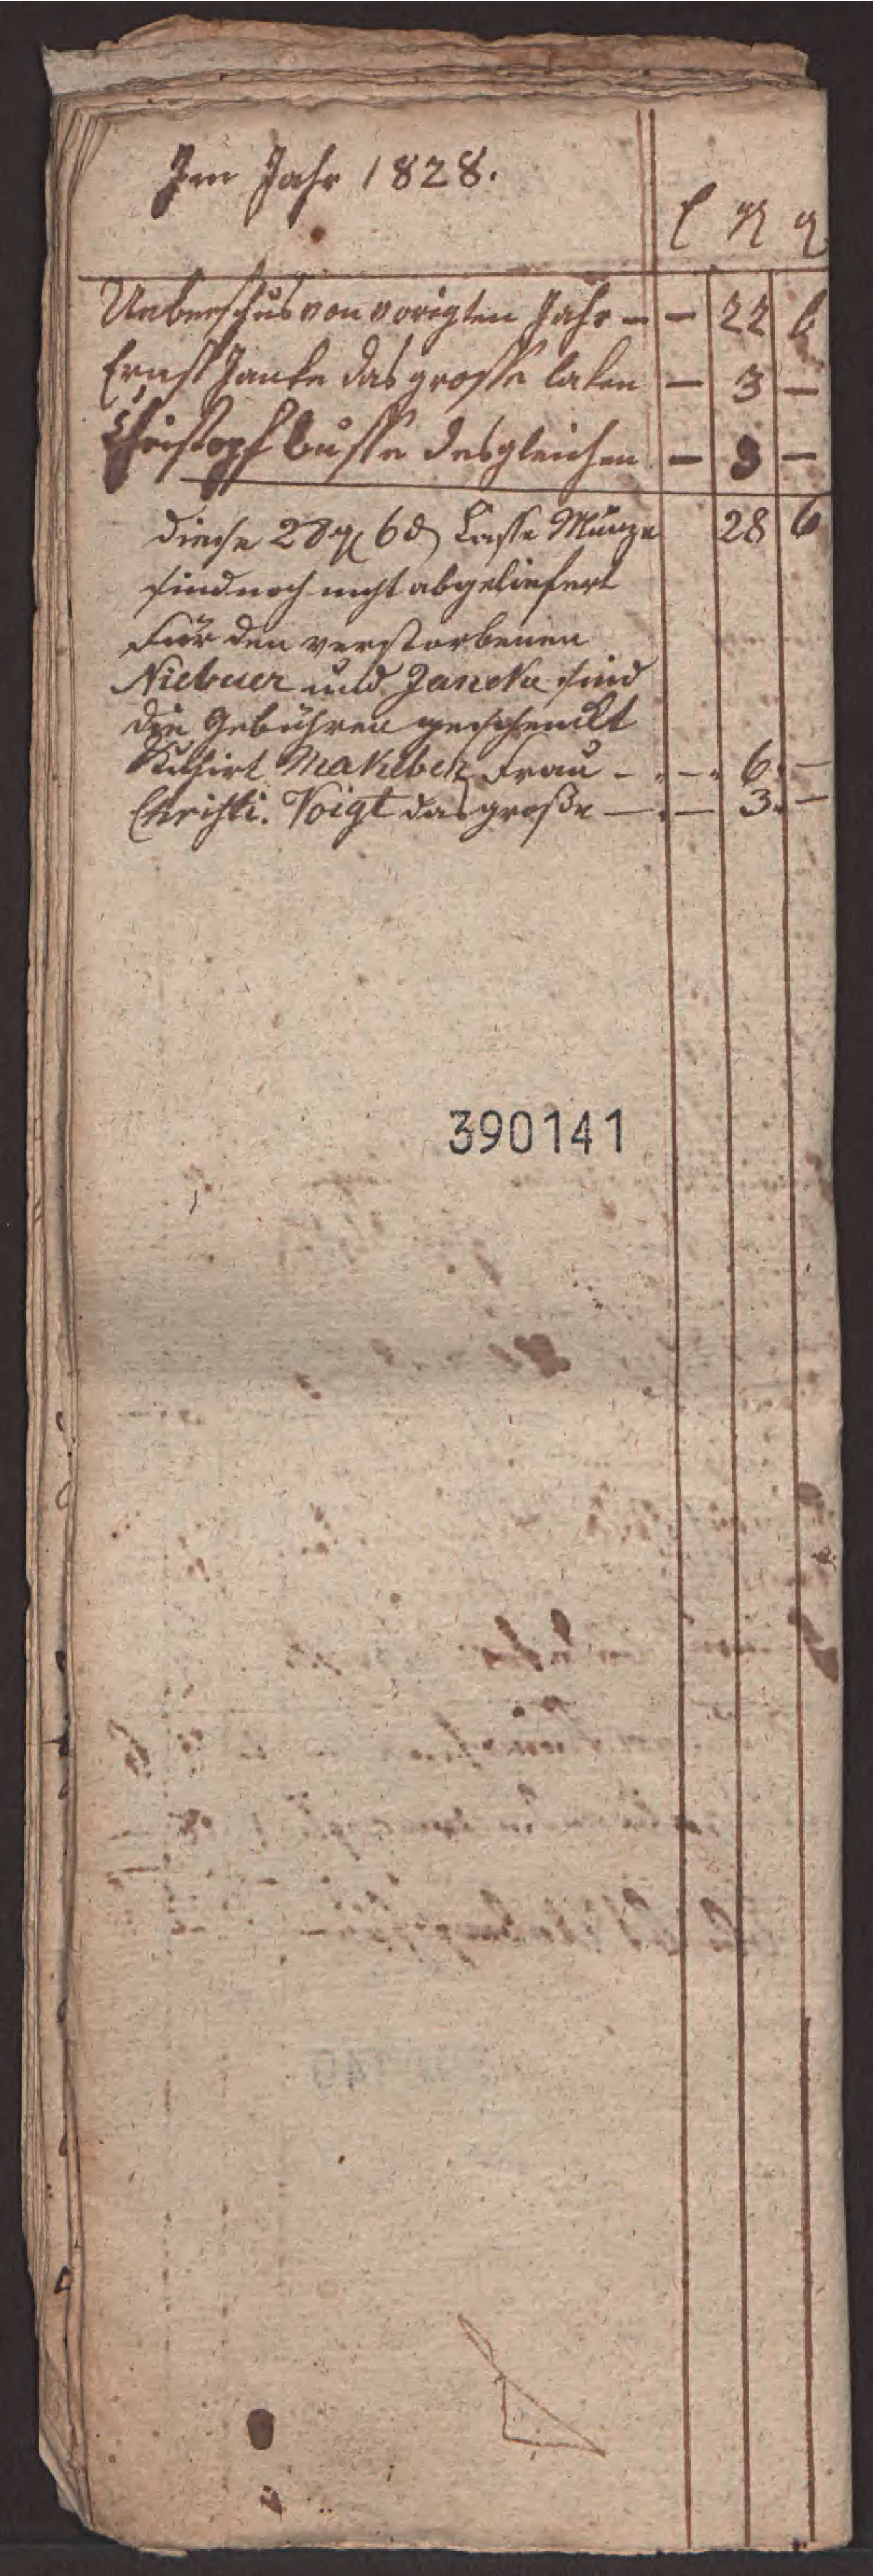 Im Jahr 1828.
Ueberschus von vorigten Jahr — — 22 6
Ernst Janke das grosse laken — 3 —
Christoph Busse desgleichen — 3 —
diese 28 6 Casse Münze 28 6
sind noch nicht abgeliefert
Für den verstorbenen
Niebuer und Janeke sind
die Gebühren geschenckt
Kuhirt Frau — — 6. —
Christi. Voigt das große — — 3. —
390141